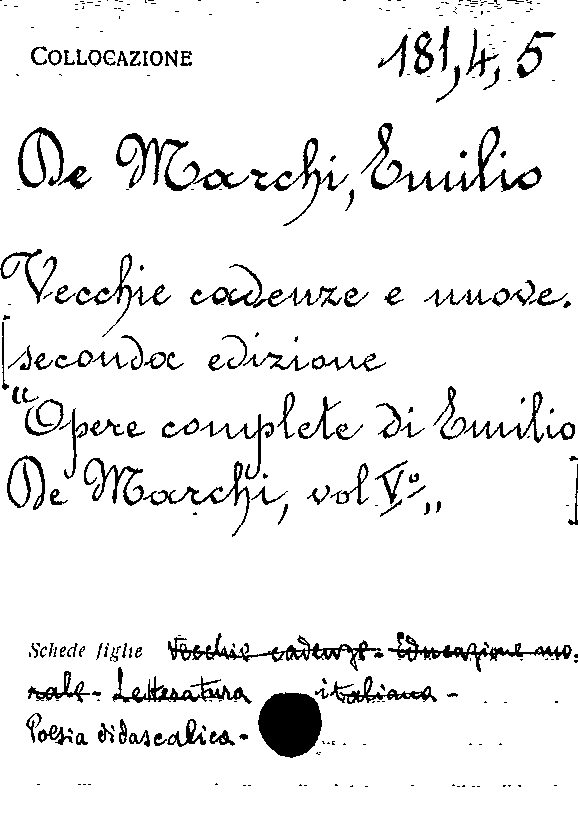 COLLOCAZIONE 181, 4, 5
De Marchi, Emilio
Vecchie cadenze e nuove.
[seconda edizione
"Opere complete di Emilio
De Marchi, vol V°„]
Schede figlie Vecchie cadenze - Educazione mo-
rale - Letteratura italiana -
Poesia didascalica -